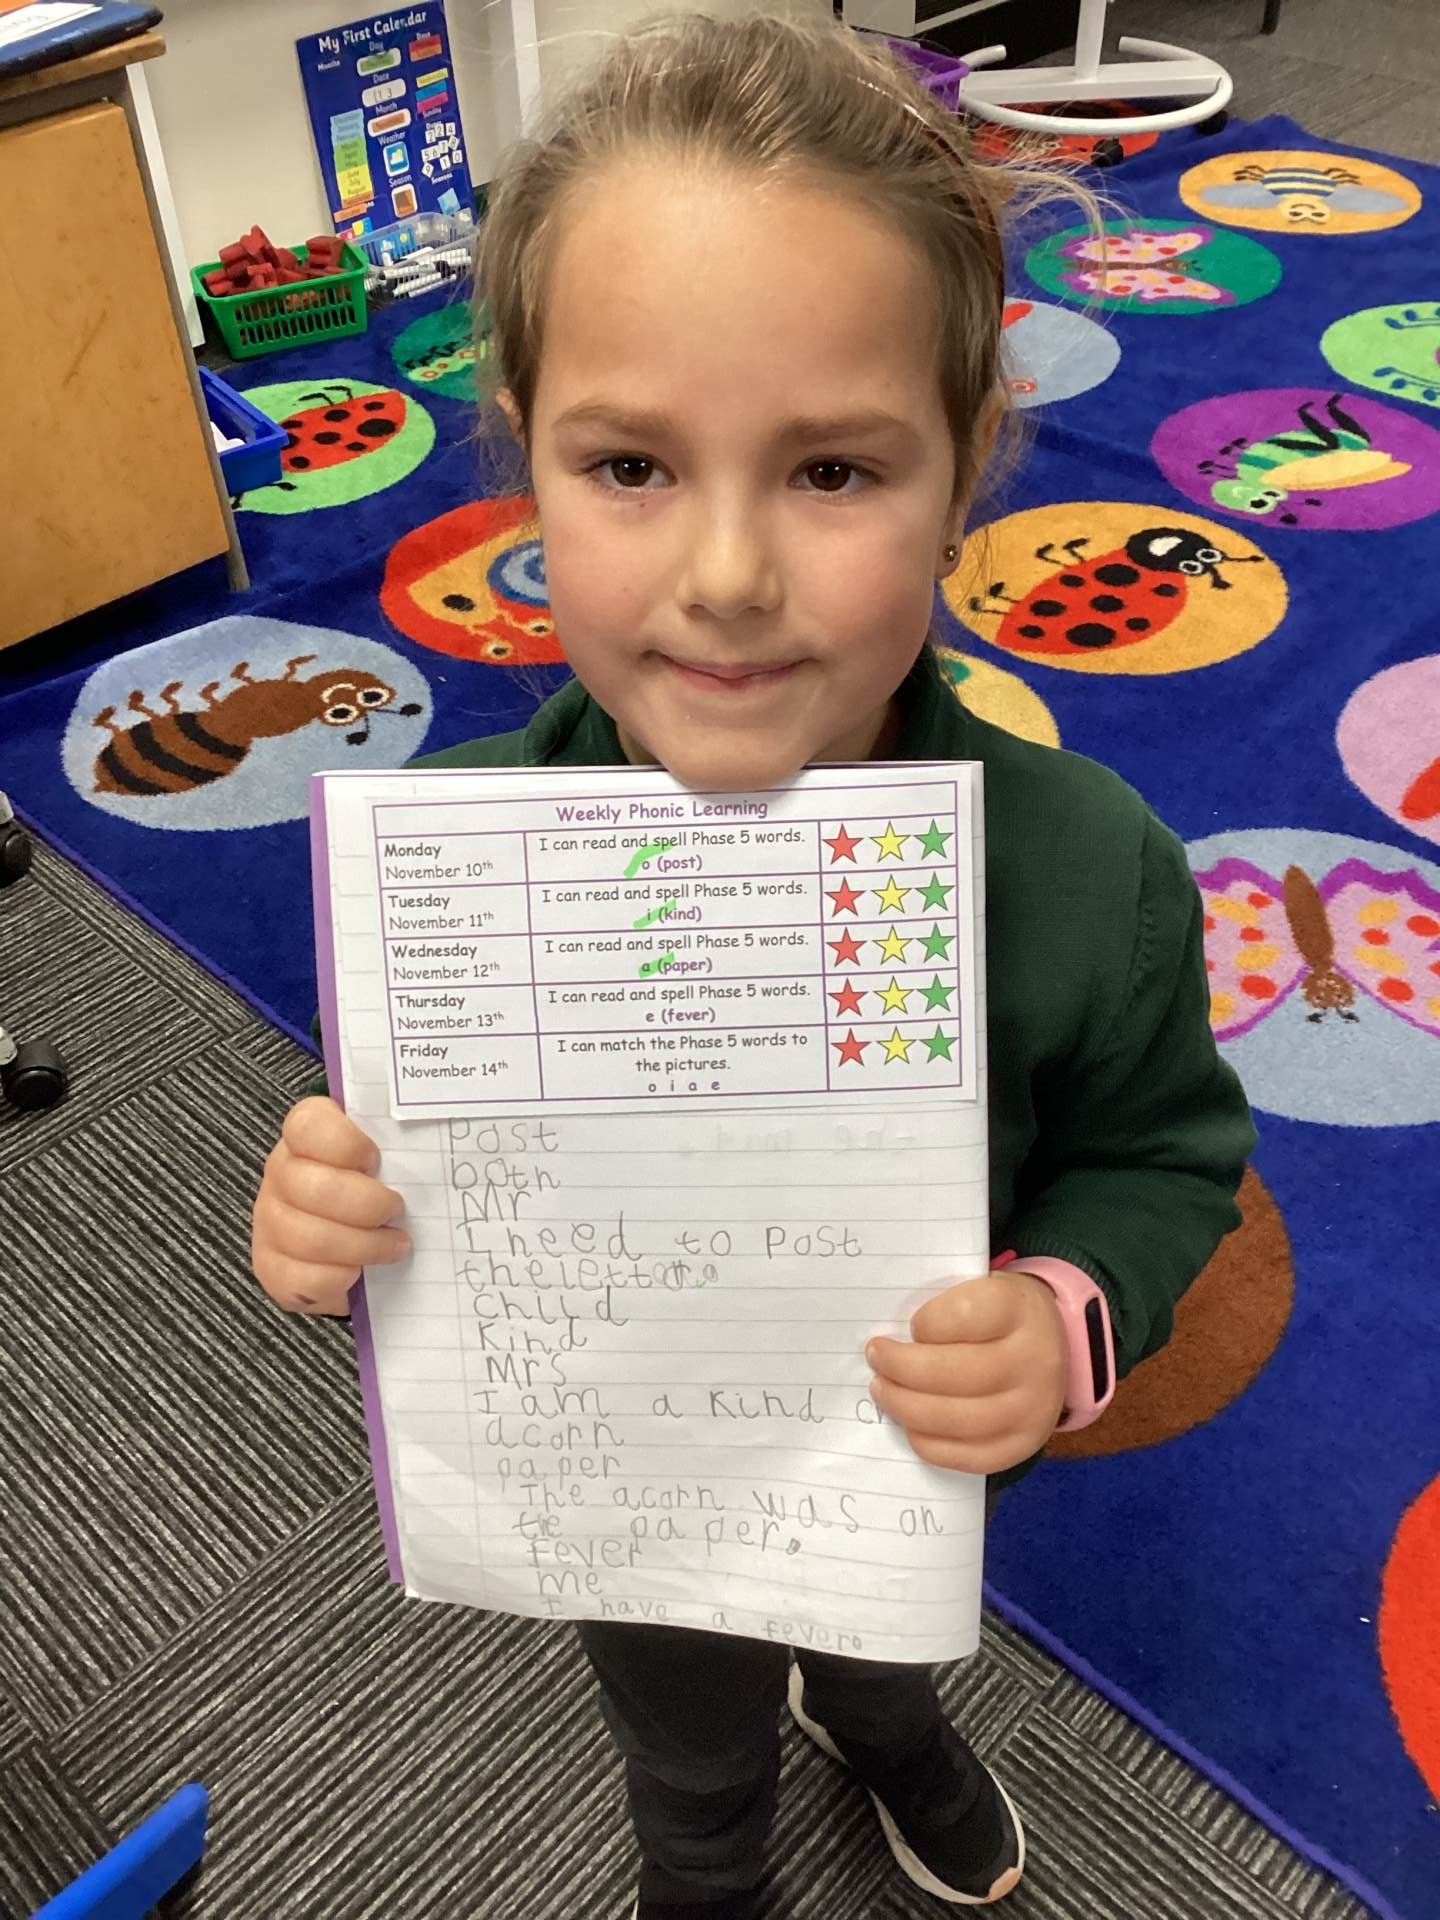 My First Calendar
Day
Date
Months
Date
13
Month
Weather
Season
Seasons
Weekly Phonic Learning
Monday
November 10th
I can read and spell Phase 5 words.
o (post)
Tuesday
November 11th
I can read and spell Phase 5 words.
i (kind)
Wednesday
November 12th
I can read and spell Phase 5 words.
a (paper)
Thursday
November 13th
I can read and spell Phase 5 words.
e (fever)
Friday
November 14th
I can match the Phase 5 words to
the pictures.
o i a e
Post
both
Mr
I need to Post
the letter.
child
Kind
Mrs
I am a Kind ch
acorn
paper
The acorn was on
the paper.
fever
me
I have a fever.